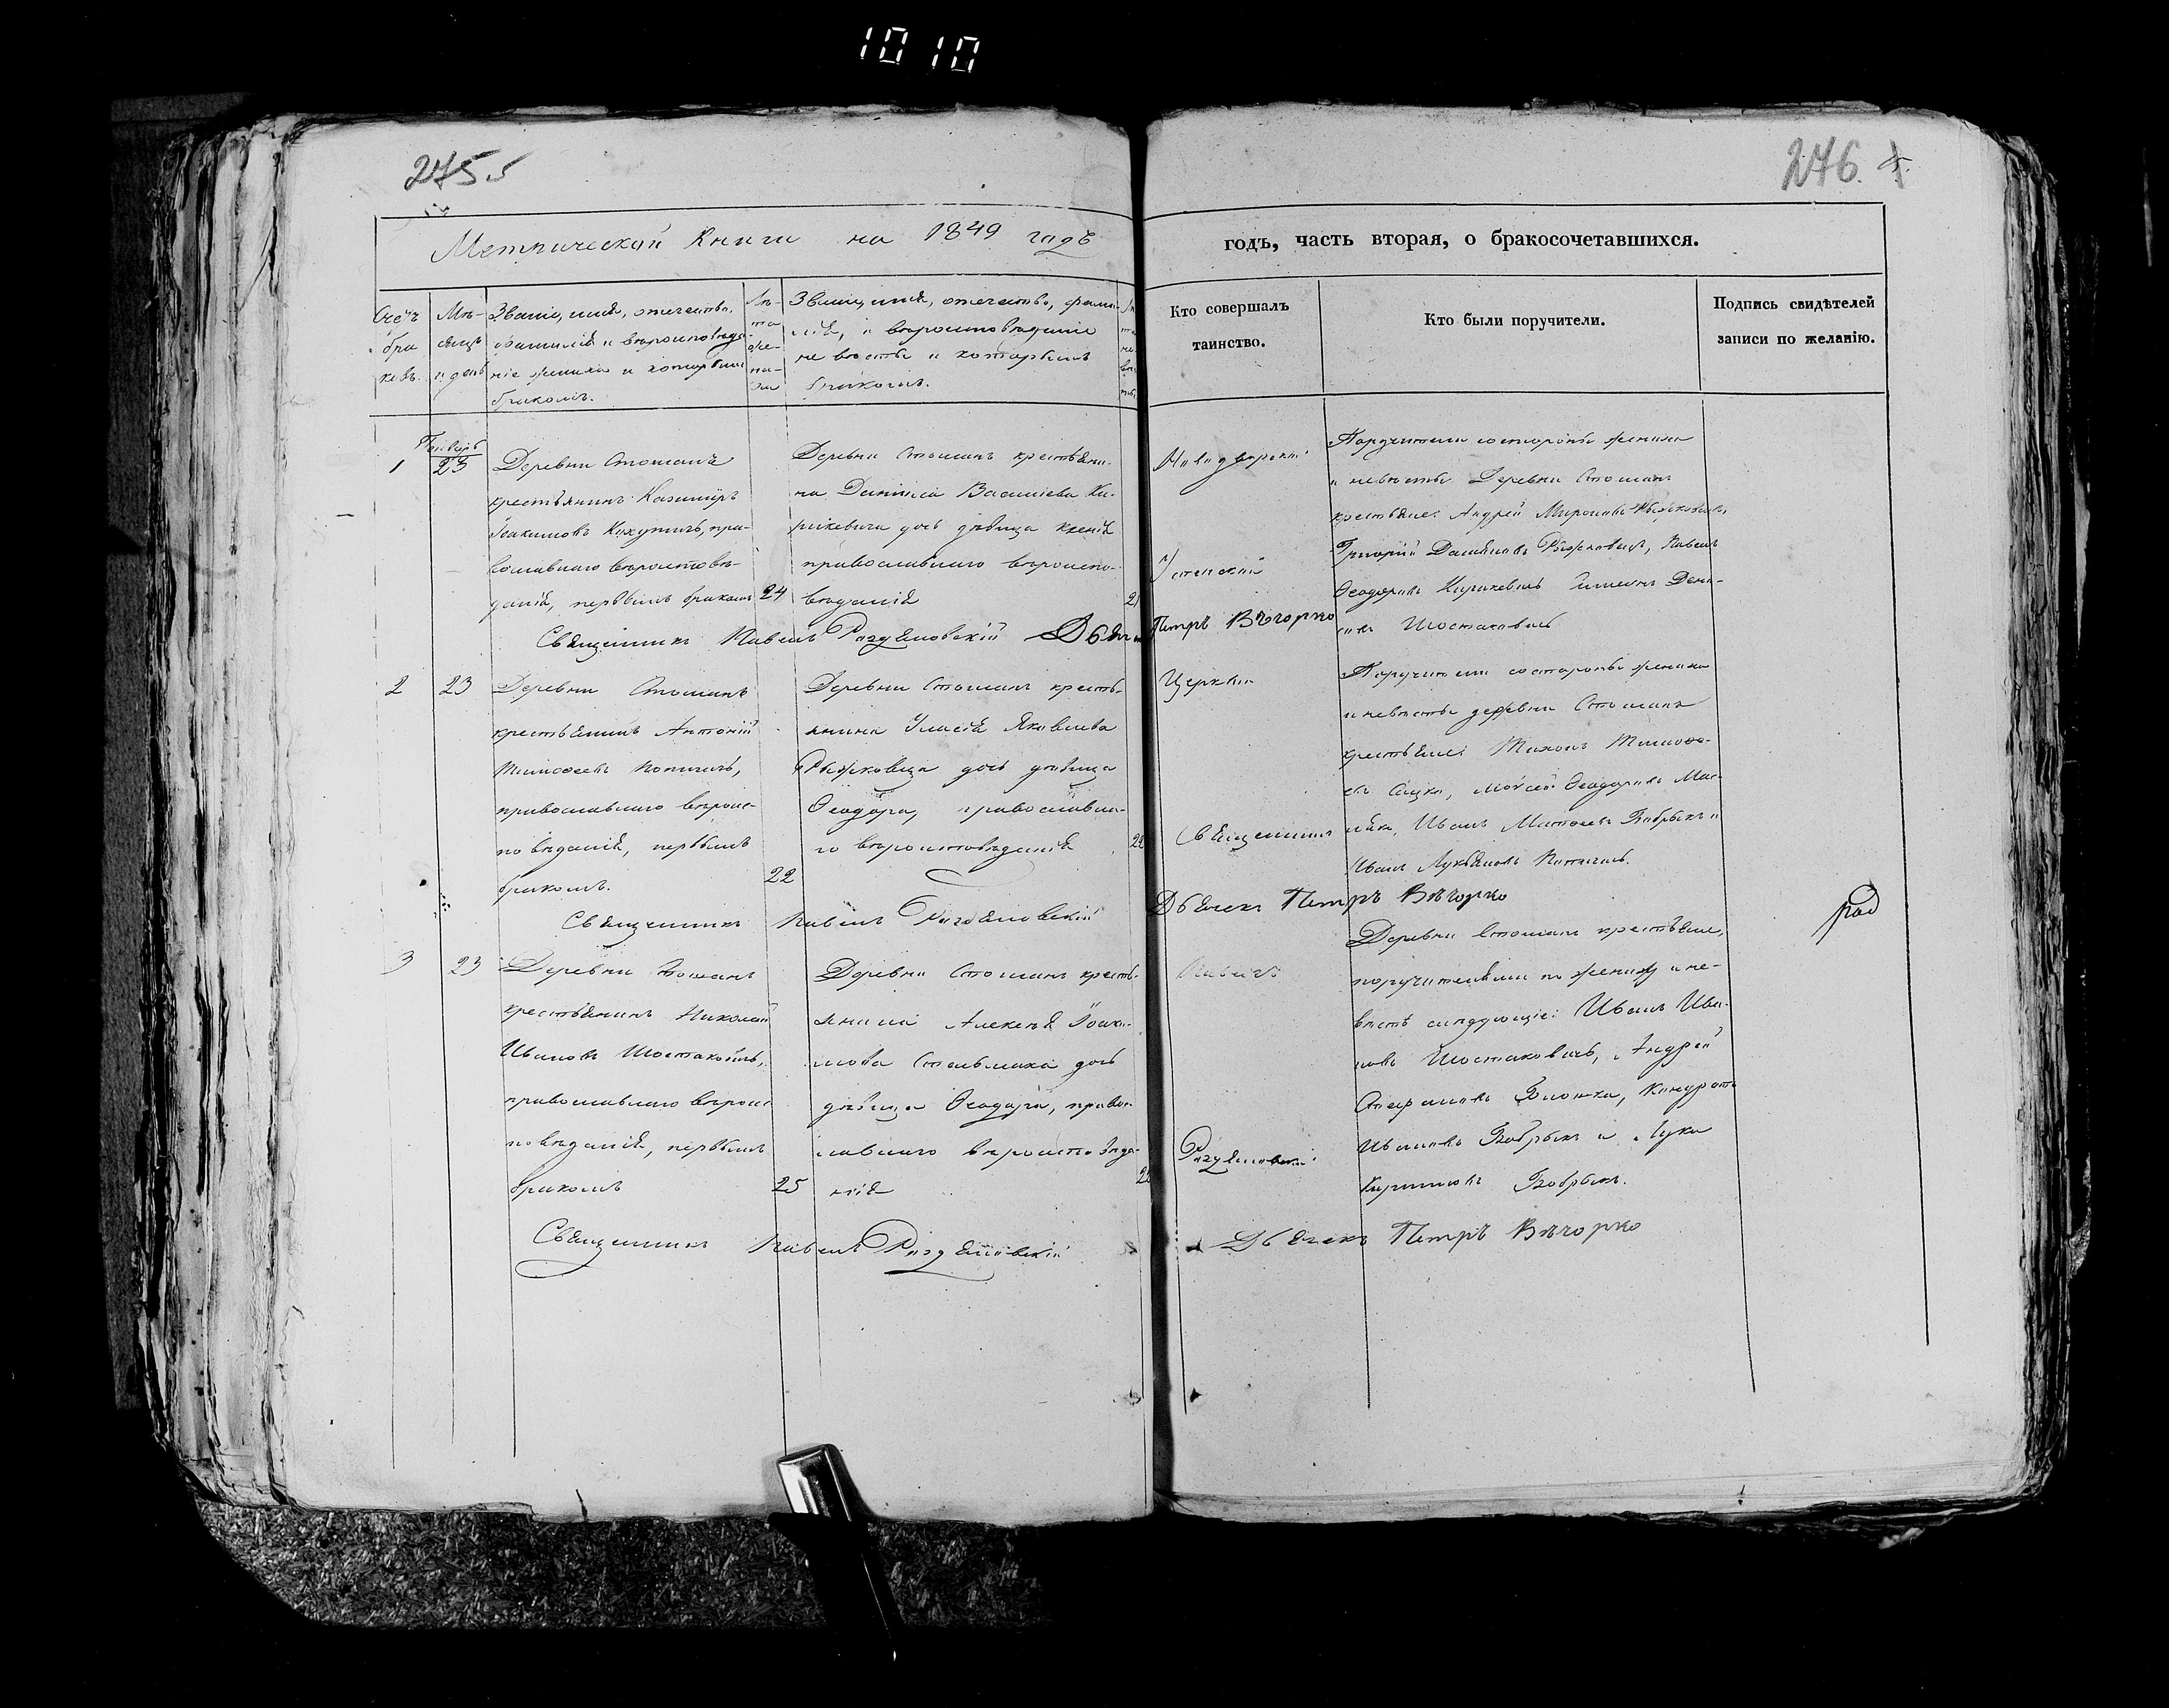 1010
275.
276.
Метрической Книги на 1849 годъ
годъ, часть вторая, о бракосочетавшихся.
Счетъ бра ковъ.
Мѣ- сяцъ и день
Званіе, имя, отечество,
фамилія и вѣроисповѣда-
ніе жениха и которымъ
бракомъ.
Лѣ-
та
же-
ни-
ха
Званіе, имя, отечество, фами-
лія, и вѣроисповѣданіе
невѣсты и которымъ
бракомъ.
Кто совершалъ
таинство.
Кто были поручители.
Подпись свидѣтелей
записи по желанію.
1
Генварь
23
Деревни Стошанъ
крестьянинъ Казимиръ
Іоакимовъ пра-
вославнаго вѣроисповѣ-
данія, первымъ бракомъ
24
Деревни Стошанъ крестьяни-
на Даніила Василіева Ки-
рикевича дочь дѣвица Ксенія
православнаго вѣроиспо-
вѣданія
21
Новодворскій
Успенскій
Поручители состороны жениха
и невѣсты Деревни Стошанъ
крестьяне: Андрей Мироновъ Рыжковецъ,
Григорій Рыжковецъ, Павелъ
Ѳеодоровъ Кирикевичъ
Шостаковичъ
Священникъ Павелъ Раздяловскій Дьячекъ Петръ Вѣчорко
2
23
Деревни Стошанъ
крестьянинъ Антоній
Тимоѳеевъ
православнаго вѣроис-
повѣданія, первымъ
бракомъ.
22
Деревни Стошанъ кресть-
янина Яковлева
Рыжковца дочь дѣвица
Ѳеодора, православна-
го вѣроисповѣданія
22
Церкви
Священникъ
Поручители состороны жениха
и невѣсты деревни Стошанъ
крестьяне: Тихонъ Тимоѳе-
евъ Моѵсей Ѳеодоровъ
Иванъ Матѳеевъ Бобрыкъ и
Иванъ Лукьяновъ
Священникъ Павелъ Раздяловскій Дьячекъ Петръ Вѣчорко
3
23
Деревни Стошанъ
крестьянинъ Николай
Ивановъ Шостаковичъ,
православнаго вѣроис-
повѣданія, первымъ
бракомъ
25
Деревни Стошанъ кресть-
янина Алексѣя Іоаки-
мова Стельмаха дочь
дѣвица Ѳеодора, право-
славнаго вѣроисповѣда-
нія
Павелъ
Раздяловскій
Деревни Стошанъ крестьяне,
поручителями по жениху и не-
вѣстѣ слѣдующіе: Иванъ Ива-
новъ Шостаковичъ, Андрей
Стефановъ Кондратъ
Ивановъ Бобрыкъ и Лука
Бобрыкъ.
Священникъ Павелъ Раздяловскій
Дьячекъ Петръ Вѣчорко